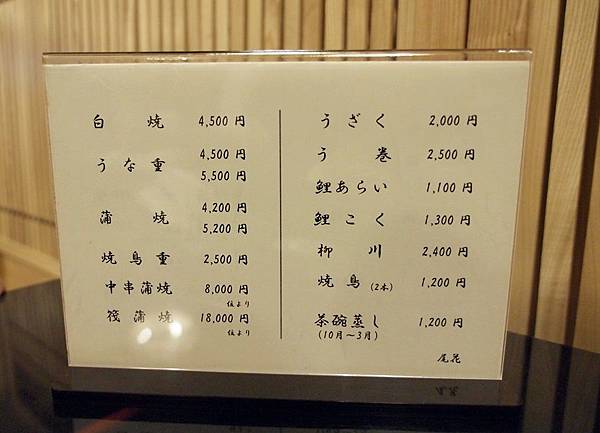 白焼 4,500 円
うな重 4,500 円
5,500 円
蒲焼 4,200 円
5,200 円
焼鳥重 2,500 円
中串蒲焼 8,000 円
位より
筏蒲焼 18,000 円
位より
うざく 2,000 円
う巻 2,500 円
鯉あらい 1,100 円
鯉こく 1,300 円
柳川 2,400 円
焼鳥(2本) 1,200 円
茶碗蒸し 1,200 円
(10月～3月)
尾花